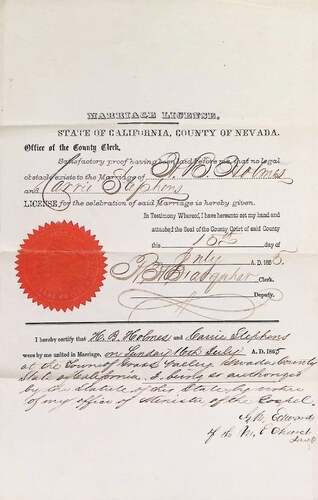 MARRIAGE LICENSE,
STATE OF CALIFORNIA, COUNTY OF NEVADA.
Office of the County Clerk,
Satisfactory proof having been laid before me, that no legal
obstacle exists to the Marriage of H. B. Holmes
and Carrie Stephens
LICENSE for the celebration of said Marriage is hereby given.
In Testimony Whereof, I have hereunto set my hand and
attached the Seal of the County Court of said County
this 15th day of
July A. D. 1865.
Clerk.
Deputy.
I hereby certify that H. B. Holmes and Carrie Stephens
were by me united in Marriage, on Sunday 16th July A. D. 1865
at the Town of Grass Valley, Nevada County
State of California. I being so authorized
by the Statute of the State by virtue
of my office of Minister of the Gospel.
of the M. E. Church